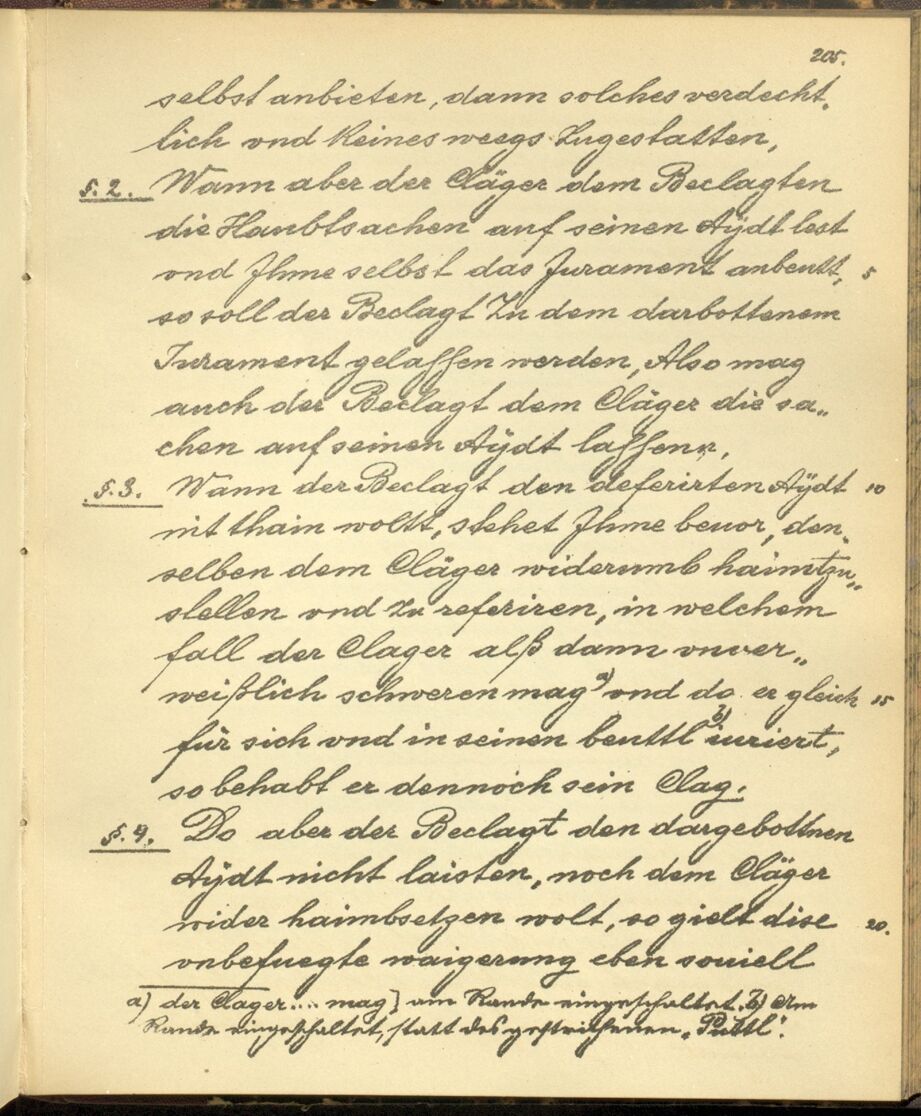 205.
selbst anbieten, dann solches verdecht„
lich vnd Keines weegs Zugestatten,
§. 2. Wann aber der Cläger dem Beclagten
die Haubtsachen auf seinen Aÿdt lest
vnd Jhme selbst das Jurament anbeutt, 5
so soll der Beclagt Zu dem darbottenem
Jurament gelassen werden, Also mag
auch der Beclagt dem Cläger die sa„
chen auf seinen Aÿdt lassenn,
§. 3. Wann der Beclagt den deferirten Aÿdt 10
nit thain woltt, stehet Jhme beuor, den„
selben dem Cläger widerumb haimtzu„
stellen vnd zu referiren, in welchem
fall der Clager alß dann vnuer„
weißlich schweren mag a) vnd do er gleich 15
für sich vnd in seinen beuttl b) iuriert,
so behabt er dennoch sein Clag.
§. 4. Do aber der Beclagt den dargebottnen
Aÿdt nicht laisten, noch dem Cläger
wider haimbsetzen wolt, so gielt dise 20.
vnbefuegte waigerung eben souiell
a) der Clager.... mag] am Rande eingeschaltet. b) Am
Rande eingeschaltet, statt des gestrichenen „Püttl".